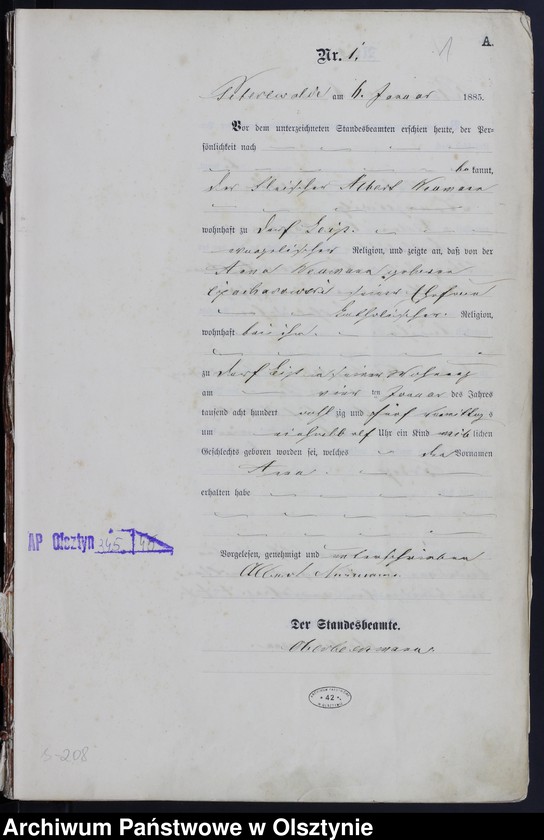 A.
1
Nr. 1.
Peterswalde am 6. Januar 1885.
Vor dem unterzeichneten Standesbeamten erschien heute, der Per-
sönlichkeit nach
bekannt,
der Fleischer Albert Neumann
wohnhaft zu Dorf Leip
evangelischer Religion, und zeigte an, daß von der
Anna Neumann geborene
seiner Ehefrau
katholischer Religion,
wohnhaft bei ihm
zu Dorf Leip in seiner Wohnung
am vier ten Januar des Jahres
tausend acht hundert achtzig und fünf Vormittags
um elf Uhr ein Kind weiblichen
Geschlechts geboren worden sei, welches den Vornamen
Anna
erhalten habe
Vorgelesen, genehmigt und unterschrieben
Albert Neumann
Der Standesbeamte.
AP Olsztyn
42
S-208
Archiwum Państwowe w Olsztynie